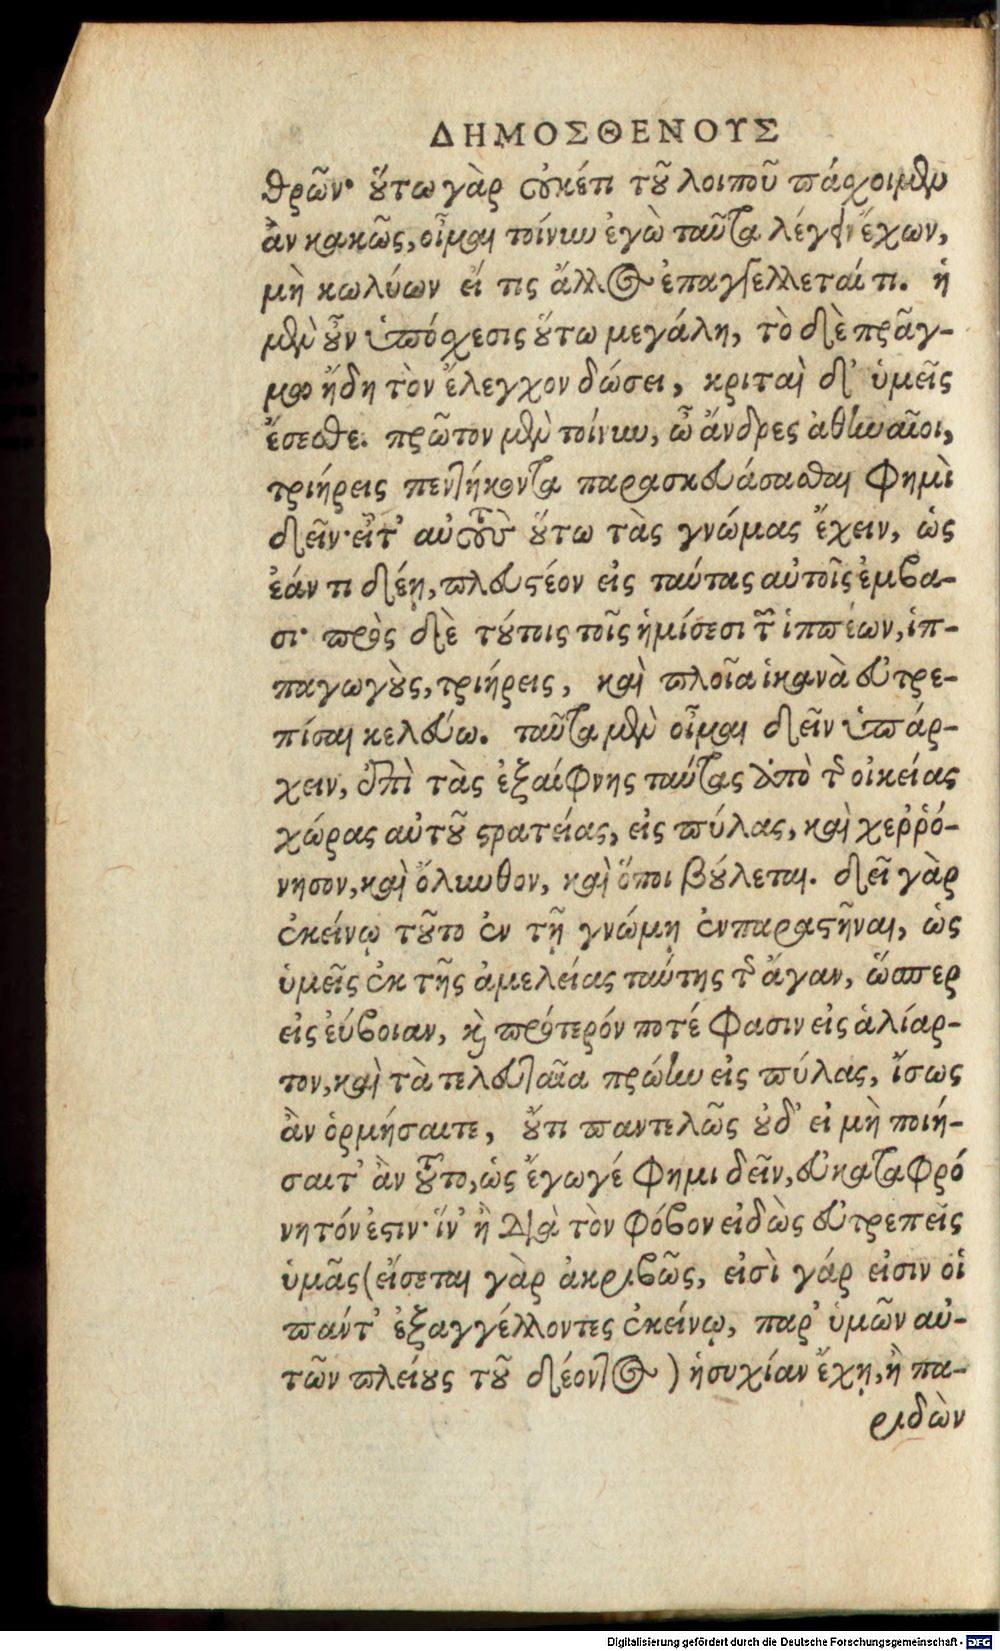 ΔΗΜΟΣΘΕΝΟΥΣ
θρῶν· οὕτω γὰρ οὐκέτι τοῦ λοιποῦ πάσχοιμεν
ἂν κακῶς, οἶμαι τοίνυν ἐγὼ ταῦτα λέγειν ἔχων,
μὴ κωλύων εἴ τις ἄλλος ἐπαγγέλλεταί τι. ἡ
μὲν οὖν ὑπόσχεσις οὕτω μεγάλη, τὸ δὲ πρᾶγ-
μα ἤδη τὸν ἔλεγχον δώσει, κριταὶ δ' ὑμεῖς
ἔσεσθε. πρῶτον μὲν τοίνυν, ὦ ἄνδρες ἀθηναῖοι,
τριήρεις πεντήκοντα παρασκευάσασθαι φημὶ
δεῖν· εἶτ' αὐτοὺς οὕτω τὰς γνώμας ἔχειν, ὡς
ἐάν τι δέῃ, πλευστέον εἰς ταύτας αὐτοῖς ἐμβα-
σι· πρὸς δὲ τούτοις τοῖς ἡμίσεσι τῶν ἱππέων, ἱπ-
παγωγοὺς, τριήρεις, καὶ πλοῖα ἱκανὰ εὐτρε-
πίσαι κελεύω. ταῦτα μὲν οἶμαι δεῖν ὑπάρ-
χειν, ἐπὶ τὰς ἐξαίφνης ταύτας ἀπὸ τῆς οἰκείας
χώρας αὐτοῦ στρατείας, εἰς πύλας, καὶ χεῤῥό-
νησον, καὶ ὄλυνθον, καὶ ὅποι βούλεται. δεῖ γὰρ
ἐκείνῳ τοῦτο ἐν τῇ γνώμῃ ἐνπαραστῆναι, ὡς
ὑμεῖς ἐκ τῆς ἀμελείας ταύτης τῆς ἄγαν, ὥσπερ
εἰς εὔβοιαν, καὶ πρότερόν ποτέ φασιν εἰς ἁλίαρ-
τον, καὶ τὰ τελευταῖα πρώην εἰς πύλας, ἴσως
ἂν ὁρμήσαιτε, οὔτι παντελῶς οὐδ' εἰ μὴ ποιή-
σαιτ' ἂν τοῦτο, ὡς ἔγωγέ φημι δεῖν, εὐκαταφρό
νητόν ἐστιν· ἵν' ἢ διὰ τὸν φόβον εἰδὼς εὐτρεπεῖς
ὑμᾶς (εἴσεται γὰρ ἀκριβῶς, εἰσὶ γάρ εἰσιν οἱ
πάντ' ἐξαγγέλλοντες ἐκείνῳ, παρ' ὑμῶν αὐ-
τῶν πλείους τοῦ δέοντος) ἡσυχίαν ἔχῃ, ἢ πα-
ριδὼν
Digitalisierung gefördert durch die Deutsche Forschungsgemeinschaft - DFG